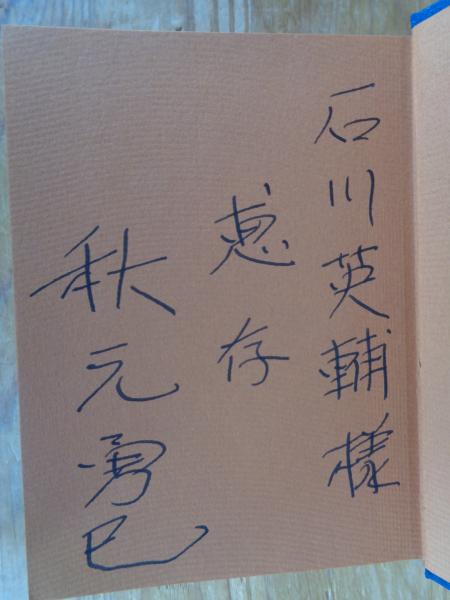 石川英輔様
恵存
秋元勇巳